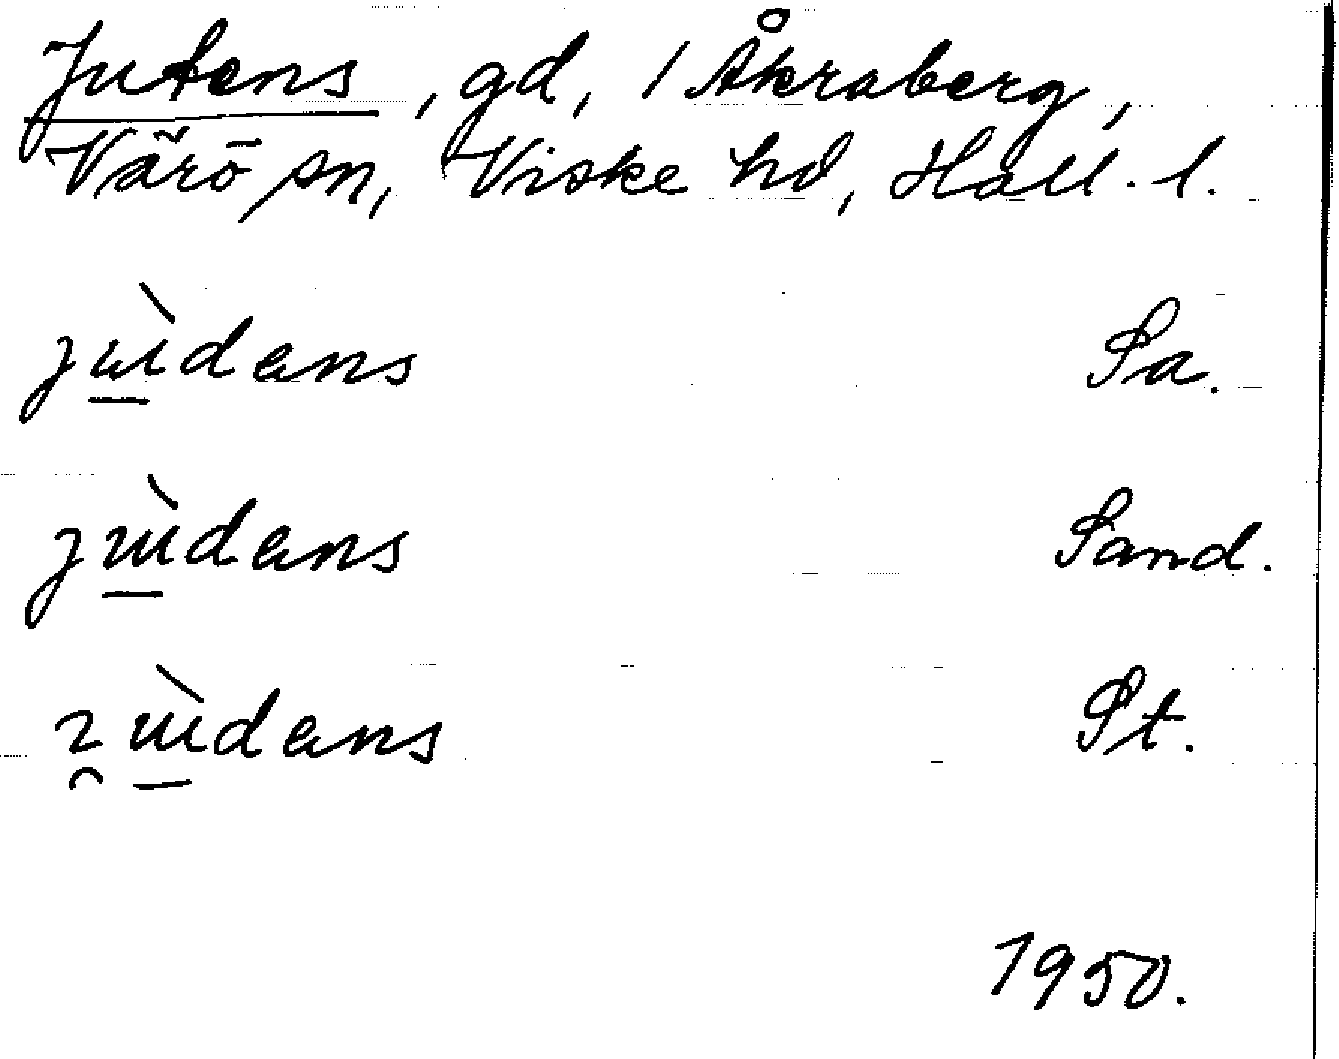 Jutens, gd, 1 Åkraberg,
Värö sn, Viske hd, Hall. l.
jùdans Sa.
jùdans Sand.
ùdans St.
1950.